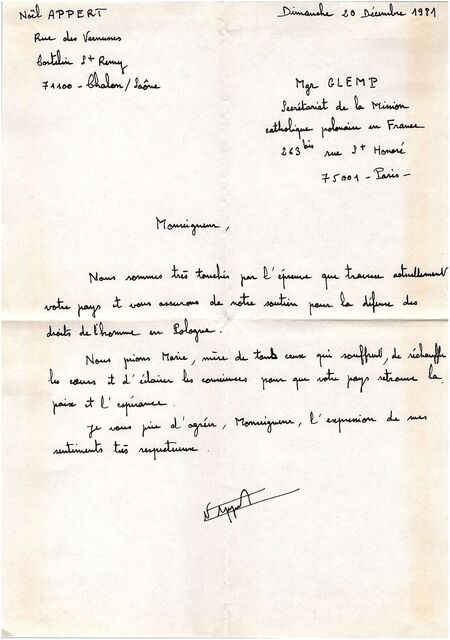 Noël APPERT
Dimanche 20 Décembre 1981
Rue des Vernunes
Cortelin St Remy
71100 - Chalon/Saône
Mgr GLEMP
Secrétariat de la Mission
catholique polonaise en France
263bis rue St Honoré
75001 - Paris -
Monseigneur,
Nous sommes très touchés par l'épreuve que traverse actuellement
votre pays et vous assurons de notre soutien pour la défense des
droits de l'homme en Pologne.
Nous prions Marie, mère de tous ceux qui souffrent, de réchauffer
les cœurs et d'éclairer les consciences pour que votre pays retrouve la
paix et l'espérance.
Je vous prie d'agréer, Monseigneur, l'expression de mes
sentiments très respectueux.
N Appert